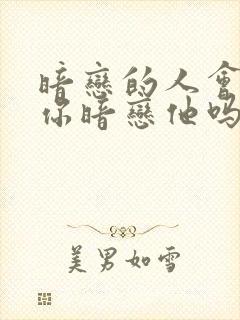 暗戀的人會
你暗戀他吗
美男如雪